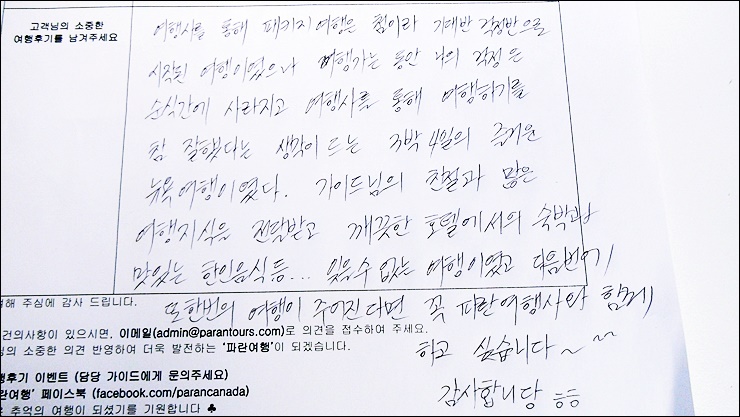 고객님의 소중한
여행후기를 남겨주세요
여행사를 통해 패키지 여행은 첨이라 기대반 걱정반으로
시작된 여행이었으나 여행가는 동안 나의 걱정은
순식간에 사라지고 여행사를 통해 여행하기를
참 잘했다는 생각이 드는 3박 4일의 즐거운
뉴욕여행이였다. 가이드님의 친절과 많은
여행지식을 전달받고 깨끗한 호텔에서의 숙박과
맛있는 한인음식 등... 잊을수 없는 여행이였고 다음번에
또한번의 여행이 주어진다면 꼭 파란여행사와 함께
하고 싶습니다~ ^^
감사합니당 ㅎㅎ
해 주심에 감사 드립니다.
건의사항이 있으시면, 이메일(admin@parantours.com)로 의견을 접수하여 주세요.
님의 소중한 의견 반영하여 더욱 발전하는 '파란여행'이 되겠습니다.
행후기 이벤트 (담당 가이드에게 문의주세요)
란여행' 페이스북 (facebook.com/parancanada)
은 추억의 여행이 되셨기를 기원합니다 ♣